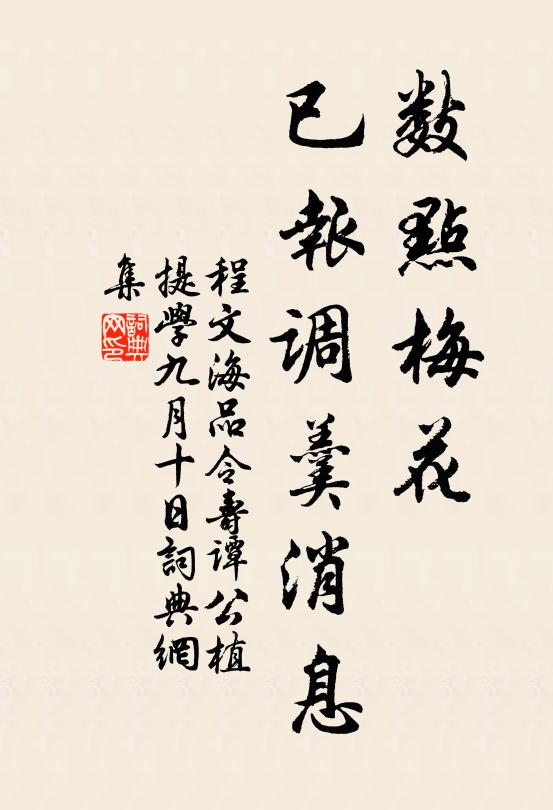 數點梅花
已報調羹消息
程文海品令壽譚公植
提學九月十日詞典網
集
詞典
网印